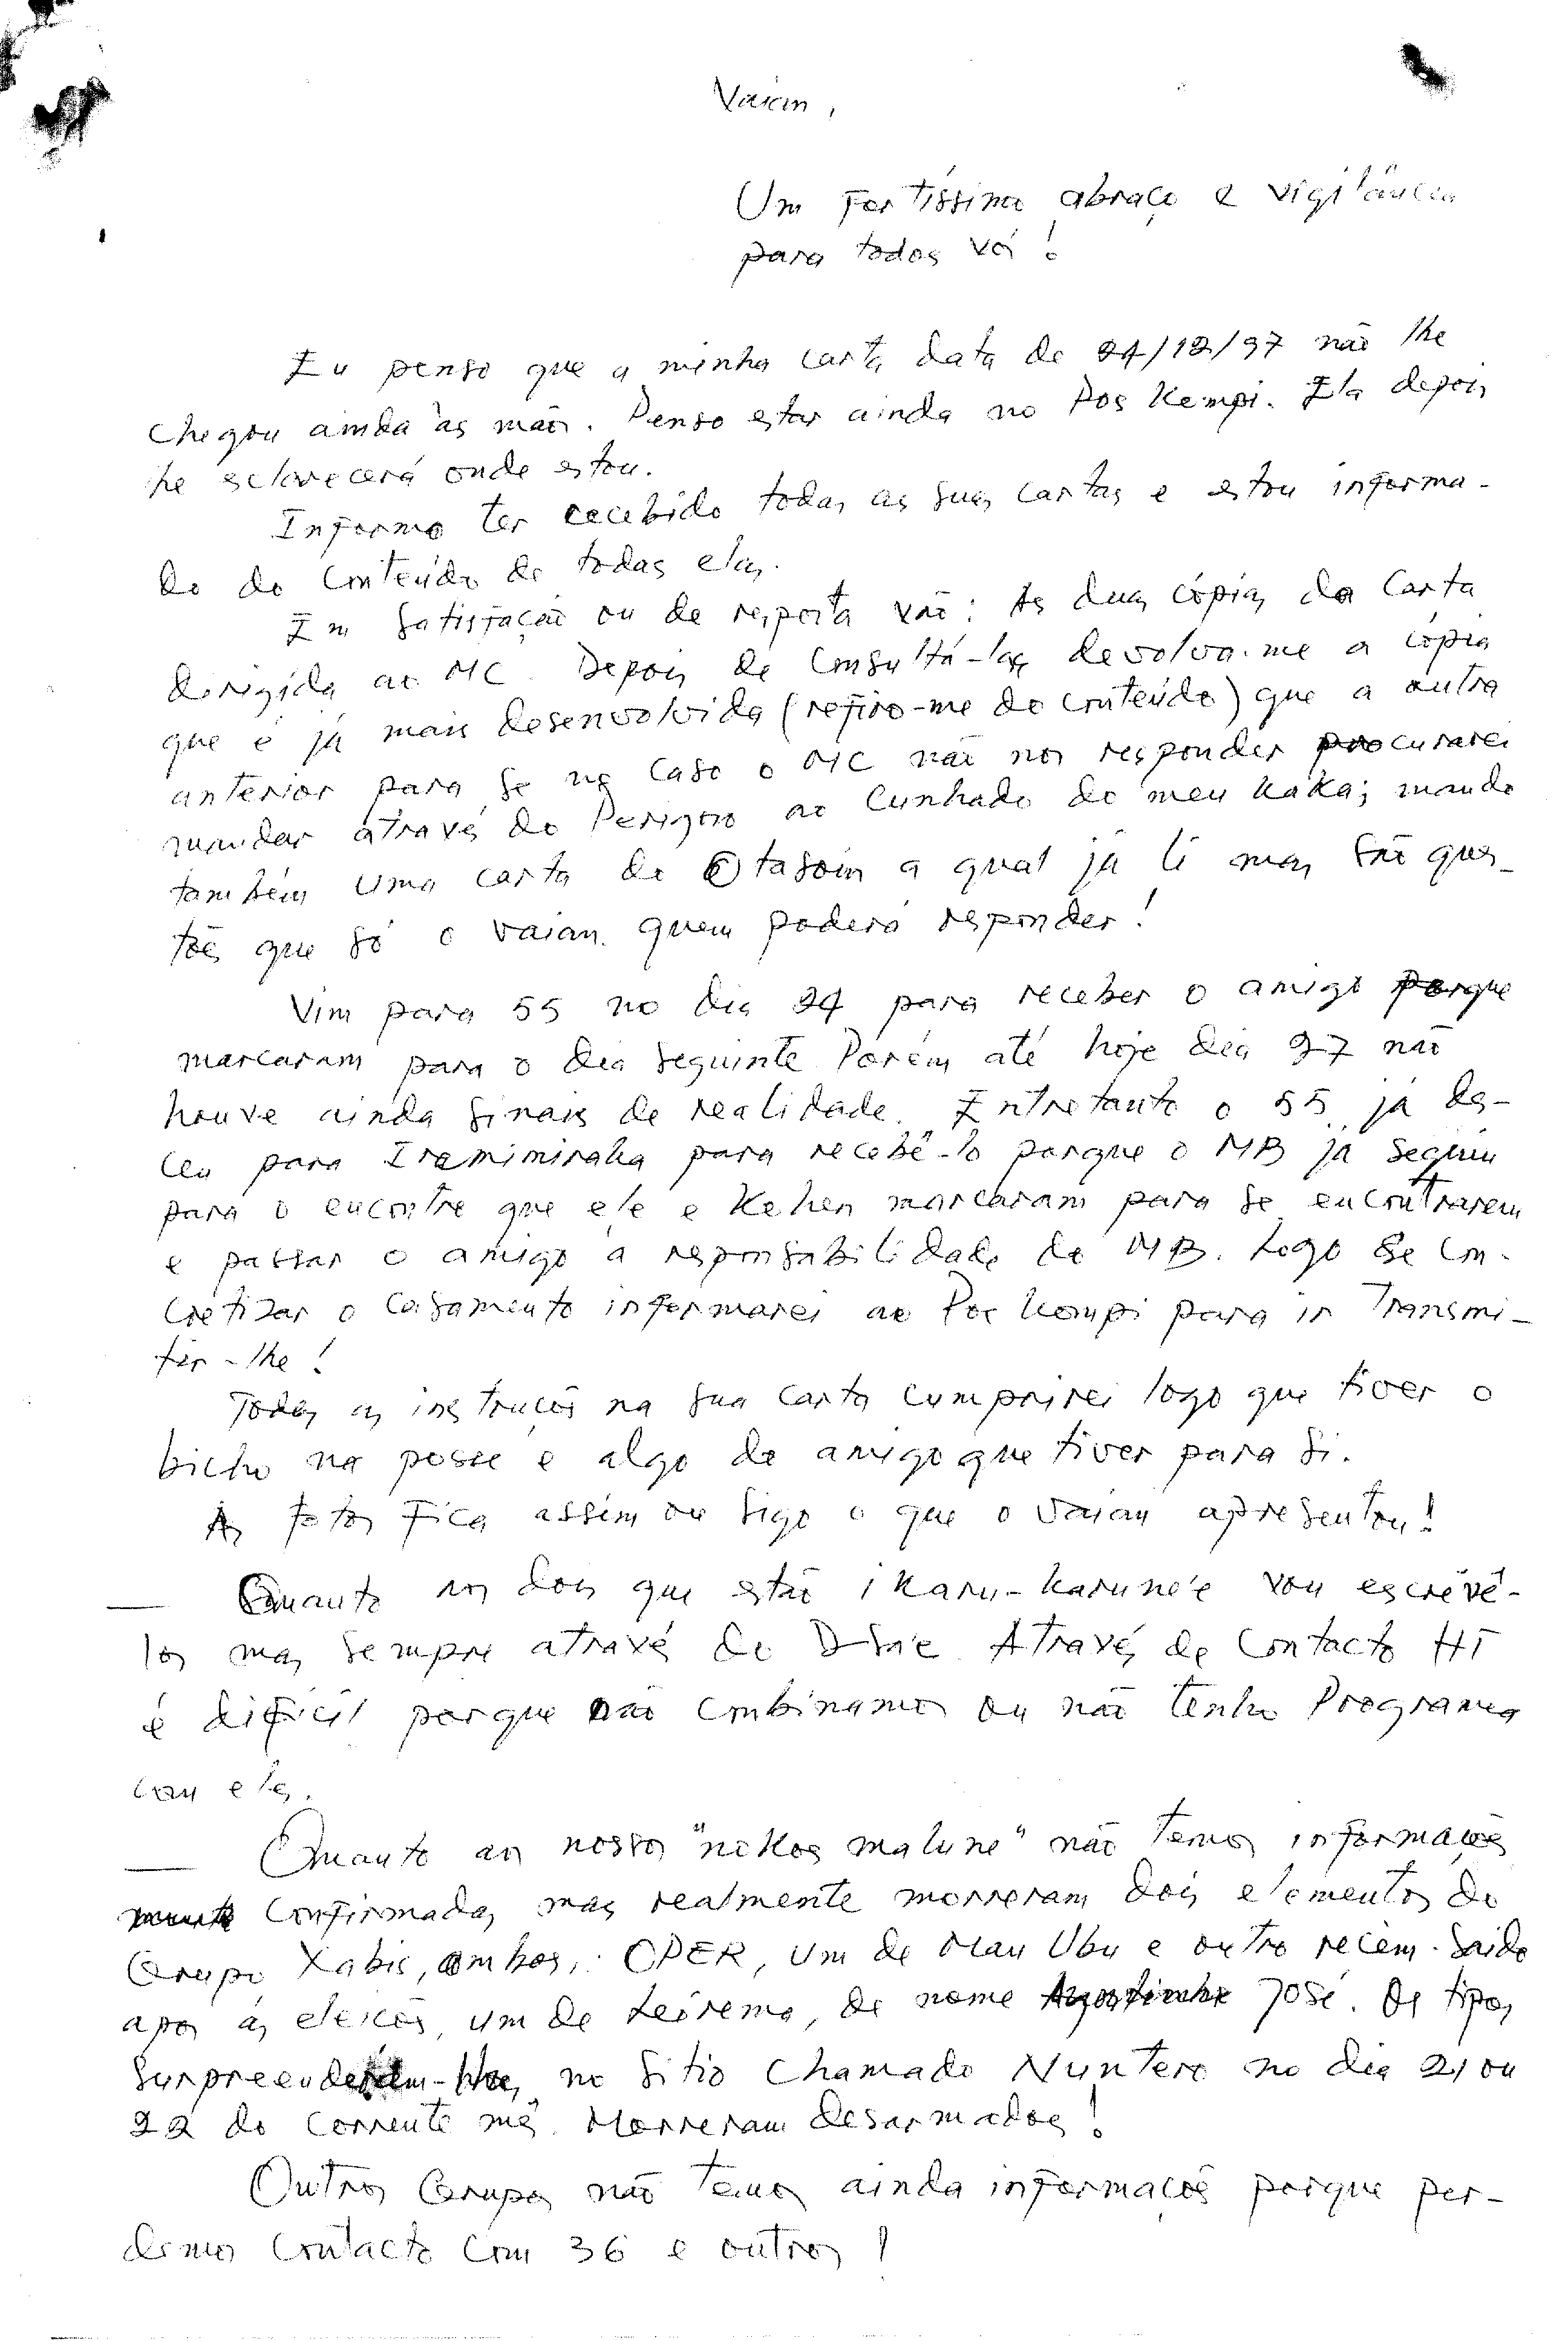 Vaian,
Um fortíssimo abraço e vigilância
para todos vós!
Eu penso que a minha carta data de 24/12/97 não lhe
chegou ainda às mãos. Penso estar ainda no Pos Kempi. Ela depois
lhe esclarecerá onde estou.
Informo ter recebido todas as suas cartas e estou informa-
do do conteúdo de todas elas.
Em satisfação ou de resposta vão: As duas cópias da carta
dirigida ao MC. Depois de consultá-las devolva-me a cópia
que é já mais desenvolvida (refiro-me do conteúdo) que a outra
anterior para se no caso o MC não nos responder procurarei
mandar através do Perigoso ao cunhado do meu Kaka; mando
também uma carta de Otasoin a qual já li mas são ques-
tões que só o Vaian quem poderá responder!
Vim para 55 no dia 24 para receber o amigo porque
marcaram para o dia seguinte. Porém até hoje dia 27 não
houve ainda sinais de realidade. Entretanto o 55 já des-
ceu para Iramimiraka para recebê-lo porque o MB já seguiu
para o encontre que ele e Kehen marcaram para se encontrarem
e passar o amigo à responsabilidade do MB. Logo se con-
cretizar o casamento informarei ao Pos Kempi para ir transmi-
tir-lhe!
Todas as instruções na sua carta cumprirei logo que tiver o
bicho na posse e algo do amigo que tiver para si.
As fotos fica assim ou sigo o que o Vaian apresentou!
Quanto aos dois que estão iKaru-Karune'e vou escrevê-
los mas sempre através do D-Sa'e. Através de contacto HT
é difícil porque não combinamos ou não tenho Programa
com eles.
Quanto aos nossos "nokos malune" não temos informações
confirmadas mas realmente morreram dois elementos do
Grupo Xabis, ambos: OPER, um de Mau Ubu e outro recém-saido
apos as eleições, um de Leirema, de nome José. Os tipos
surpreenderam-lhes no sitio chamado Nuntero no dia 21 ou
22 do corrente mês. Morreram desarmados!
Outros Grupos não temos ainda informações porque per-
demos contacto com 36 e outros!